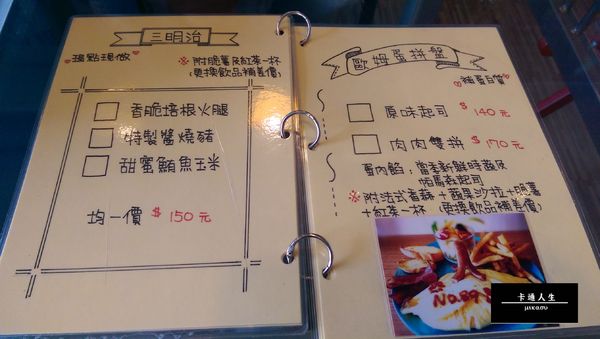 三明治
現點現做
※ 附脆薯及紅茶一杯
(更換飲品補差價)
香脆培根火腿
特製醬燒豬
甜蜜鮪魚玉米
均一價 $ 150元
歐姆蛋拼盤
補蛋白質
原味起司 $ 140元
肉肉雙拼 $ 170元
蛋內餡：當季新鮮時蔬及
帕馬森起司
※ 附法式香蒜+蘋果沙拉+脆薯
+紅茶一杯 (更換飲品補差價)
No.898
卡通人生
μικασυ